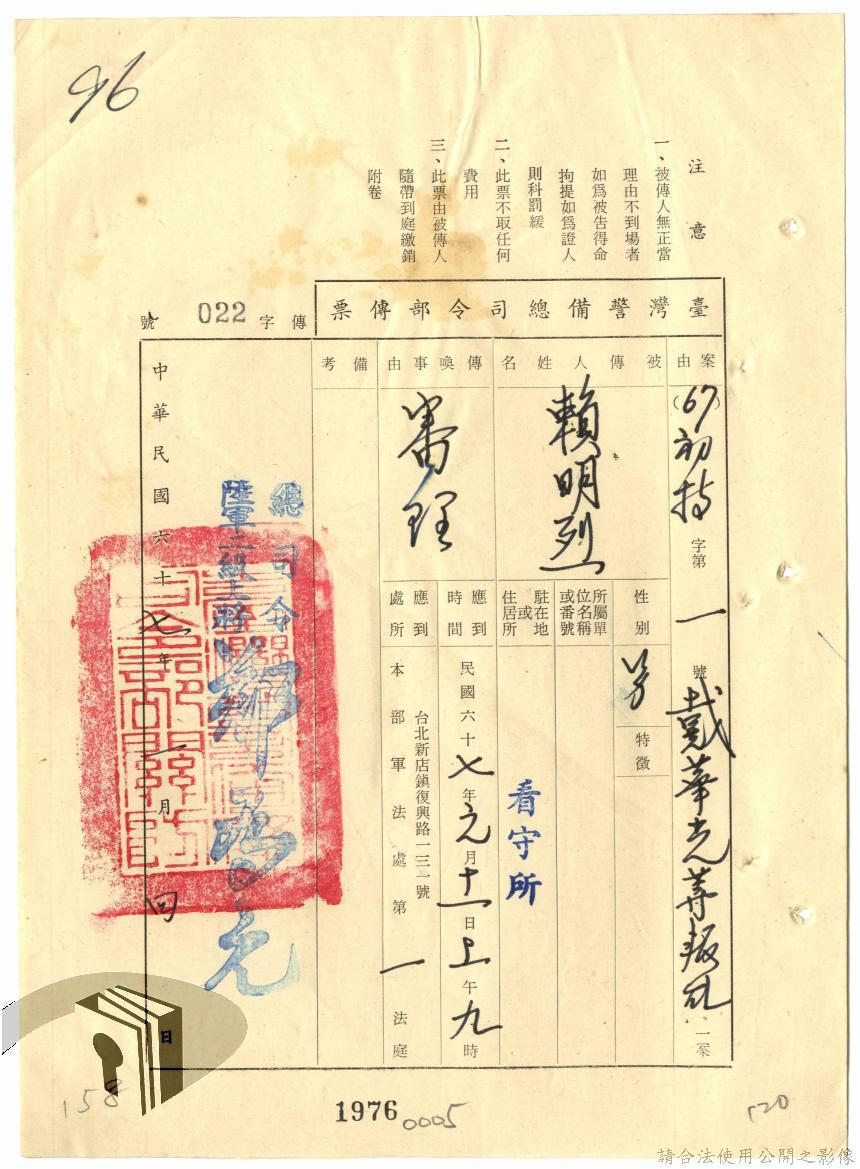 96
注意
一、被傳人無正當
理由不到場者
如爲被告得命
拘提如爲證人
則科罰鍰
二、此票不取任何
費用
三、此票由被傳人
隨帶到庭繳銷
附卷
臺灣警備總司令部傳票
傳字 022 號
案由
(67)初特字第一號戴華光等叛亂一案
被傳人姓名
賴明烈
性別
男
特徵
所屬單位名稱或番號
駐在地或住居所
看守所
傳喚事由
審理
應到時間
民國六十七年元月十一日上午九時
應到處所
台北新店鎮復興路一三一號
本部軍法處第一法庭
備考
總司令
陸軍二級上將
中華民國六十七年一月
日
158
1976
0005
120
請合法使用公開之影像